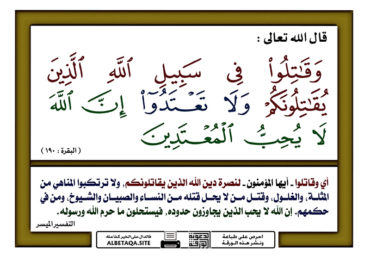 قال الله تعالى :
وَقَٰتِلُوا۟ فِى سَبِيلِ ٱللَّهِ ٱلَّذِينَ
يُقَٰتِلُونَكُمْ وَلَا تَعْتَدُوٓا۟ إِنَّ ٱللَّهَ
لَا يُحِبُّ ٱلْمُعْتَدِينَ
( البقرة : ١٩٠ )
أي وقاتلوا ـ أيها المؤمنون ـ لنصرة دين الله الذين يقاتلونكم، ولا ترتكبوا المناهي من
المثلة، والغلول، وقتل من لا يحل قتله من النساء والصبيان والشيوخ، ومن في
حكمهم. إن الله لا يحب الذين يجاوزون حدوده، فيستحلون ما حرم الله ورسوله.
التفسير الميسر
احرص على طباعة
ونشر هذه الورقة
ALBETAQA.SITE